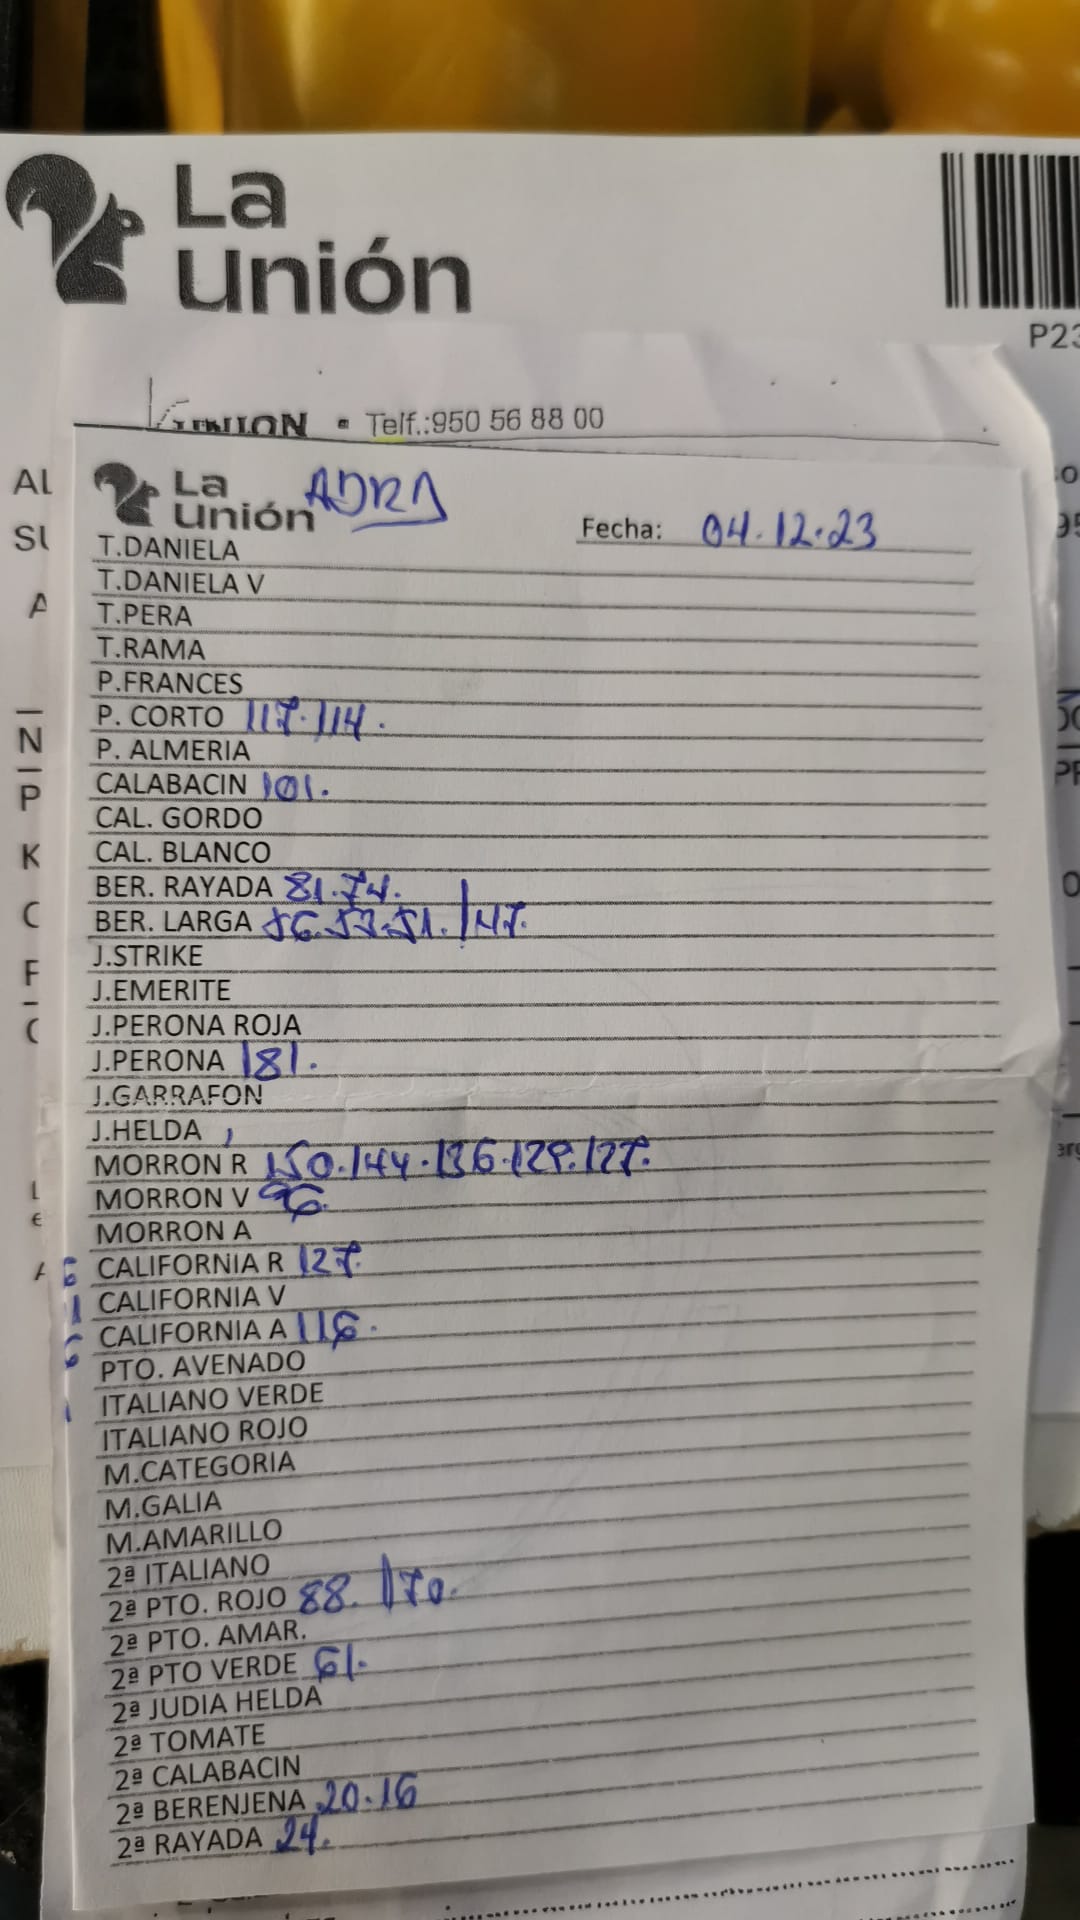 La
Unión
P23
UNION • Telf.:950 56 88 00
La
Unión ADRA
Fecha: 04.12.23
T.DANIELA
T.DANIELA V
T.PERA
T.RAMA
P.FRANCES
P. CORTO 117.114.
P. ALMERIA
CALABACIN 101.
CAL. GORDO
CAL. BLANCO
BER. RAYADA 81.74.
BER. LARGA 56.53.51./47.
J.STRIKE
J.EMERITE
J.PERONA ROJA
J.PERONA 181.
J.GARRAFON
J.HELDA
MORRON R 150.144.136.129.127.
MORRON V 96.
MORRON A
CALIFORNIA R 127.
CALIFORNIA V
CALIFORNIA A 116.
PTO. AVENADO
ITALIANO VERDE
ITALIANO ROJO
M.CATEGORIA
M.GALIA
M.AMARILLO
2ª ITALIANO
2ª PTO. ROJO 88. |70.
2ª PTO. AMAR.
2ª PTO VERDE 61.
2ª JUDIA HELDA
2ª TOMATE
2ª CALABACIN
2ª BERENJENA 20.16
2ª RAYADA 24.